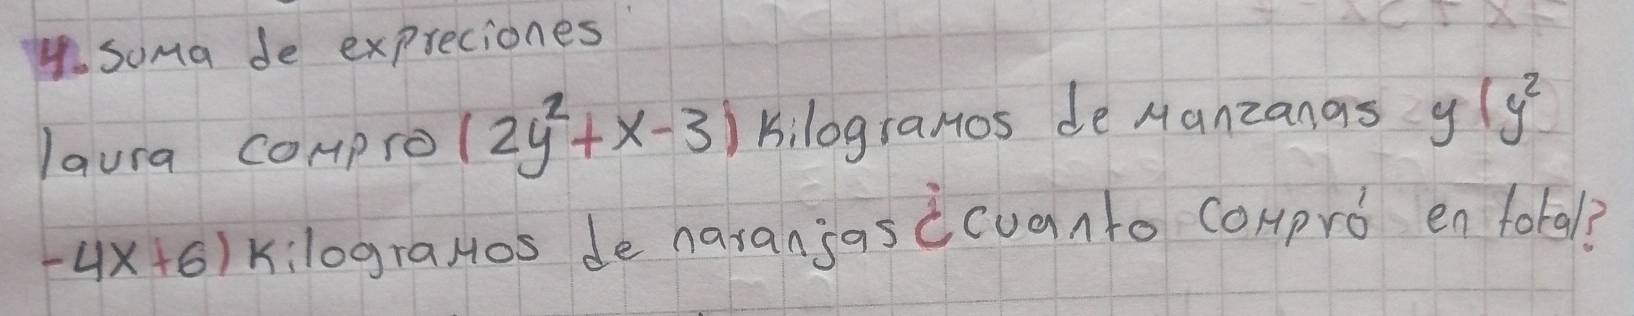 4. Suma de expreciones
laura compro (2y²+x-3) kilogramos de manzanas y (y²
-4x+6) kilogramos de naranjas ¿cuanto compró en total?